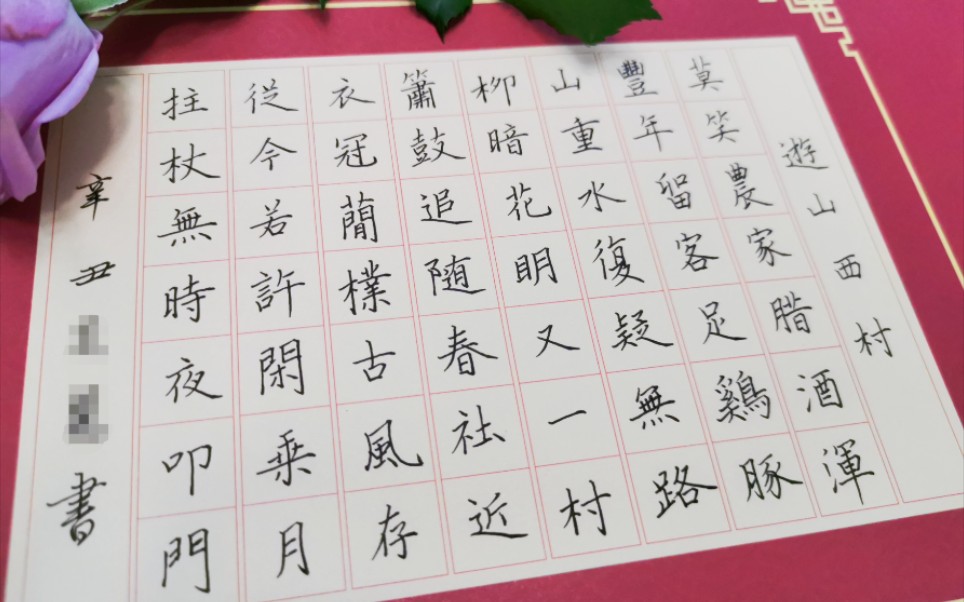 遊山西村
莫笑農家腊酒渾
豐年留客足鷄豚
山重水復疑無路
柳暗花明又一村
簫鼓追随春社近
衣冠蕳樸古風存
従今若許閑乗月
拄杖無時夜叩門
辛丑
書